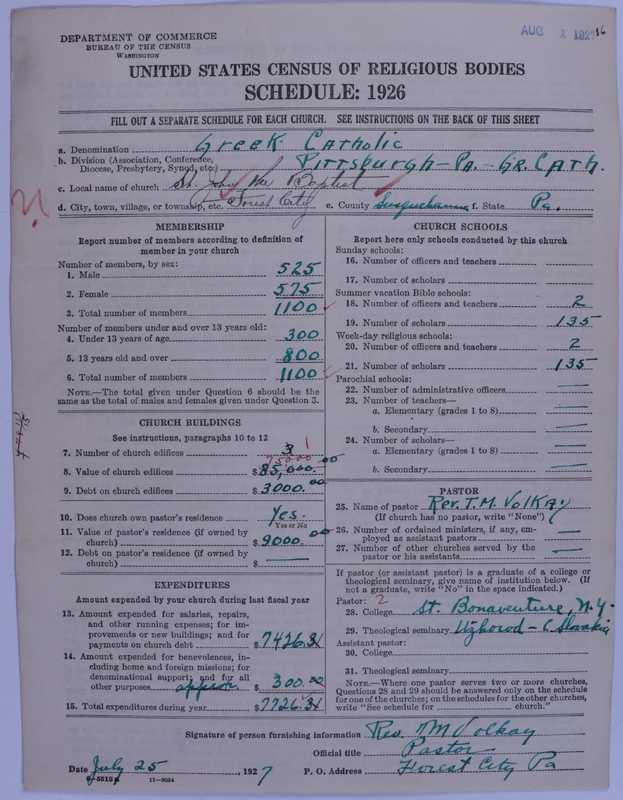 DEPARTMENT OF COMMERCE
BUREAU OF THE CENSUS
WASHINGTON
AUG 1 1927
UNITED STATES CENSUS OF RELIGIOUS BODIES
SCHEDULE: 1926
FILL OUT A SEPARATE SCHEDULE FOR EACH CHURCH. SEE INSTRUCTIONS ON THE BACK OF THIS SHEET
a. Denomination Greek Catholic
b. Division (Association, Conference, Diocese, Presbytery, Synod, etc.) Pittsburgh-Pa.-Gr. Cath.
c. Local name of church St. John the Baptist
d. City, town, village, or township, etc. Forest City e. County Susquehanna f. State Pa.
MEMBERSHIP
Report number of members according to definition of
member in your church
Number of members, by sex:
1. Male 525
2. Female 575
3. Total number of members 1100
Number of members under and over 13 years old:
4. Under 13 years of age 300
5. 13 years old and over 800
6. Total number of members 1100
NOTE.—The total given under Question 6 should be
same as the total of males and females given under Question 3.
CHURCH BUILDINGS
See instructions, paragraphs 10 to 12
7. Number of church edifices 3 1
75000
8. Value of church edifices $85,000.00
9. Debt on church edifices $3000.00
10. Does church own pastor's residence Yes.
Yes or No
11. Value of pastor's residence (if owned by
church) $9000.00
12. Debt on pastor's residence (if owned by
church) $ —
EXPENDITURES
Amount expended by your church during last fiscal year
13. Amount expended for salaries, repairs,
and other running expenses; for im-
provements or new buildings; and for
payments on church debt $7426.31
14. Amount expended for benevolences, in-
cluding home and foreign missions; for
denominational support; and for all
other purposes approx. $300.00
15. Total expenditures during year $7726.31
CHURCH SCHOOLS
Report here only schools conducted by this church
Sunday schools:
16. Number of officers and teachers —
17. Number of scholars —
Summer vacation Bible schools:
18. Number of officers and teachers 2
19. Number of scholars 135
Week-day religious schools:
20. Number of officers and teachers 2
21. Number of scholars 135
Parochial schools:
22. Number of administrative officers —
23. Number of teachers—
a. Elementary (grades 1 to 8) —
b. Secondary —
24. Number of scholars—
a. Elementary (grades 1 to 8) —
b. Secondary —
PASTOR
25. Name of pastor Rev. T.M. Volkay
(If church has no pastor, write "None")
26. Number of ordained ministers, if any, em-
ployed as assistant pastors —
27. Number of other churches served by the
pastor or his assistants —
If pastor (or assistant pastor) is a graduate of a college or
theological seminary, give name of institution below. (If
not a graduate, write "No" in the space indicated.)
Pastor: 2
28. College St. Bonaventure, N.Y.
29. Theological seminary Uzhorod - C. Slovakia
Assistant pastor:
30. College
31. Theological seminary
NOTE.—Where one pastor serves two or more churches,
Questions 28 and 29 should be answered only on the schedule
for one of the churches; on the schedules for the other churches,
write "See schedule for church."
Signature of person furnishing information Rev. TM Volkay
Official title Pastor
Date July 25, 1927 P. O. Address Forest City Pa
11—9034